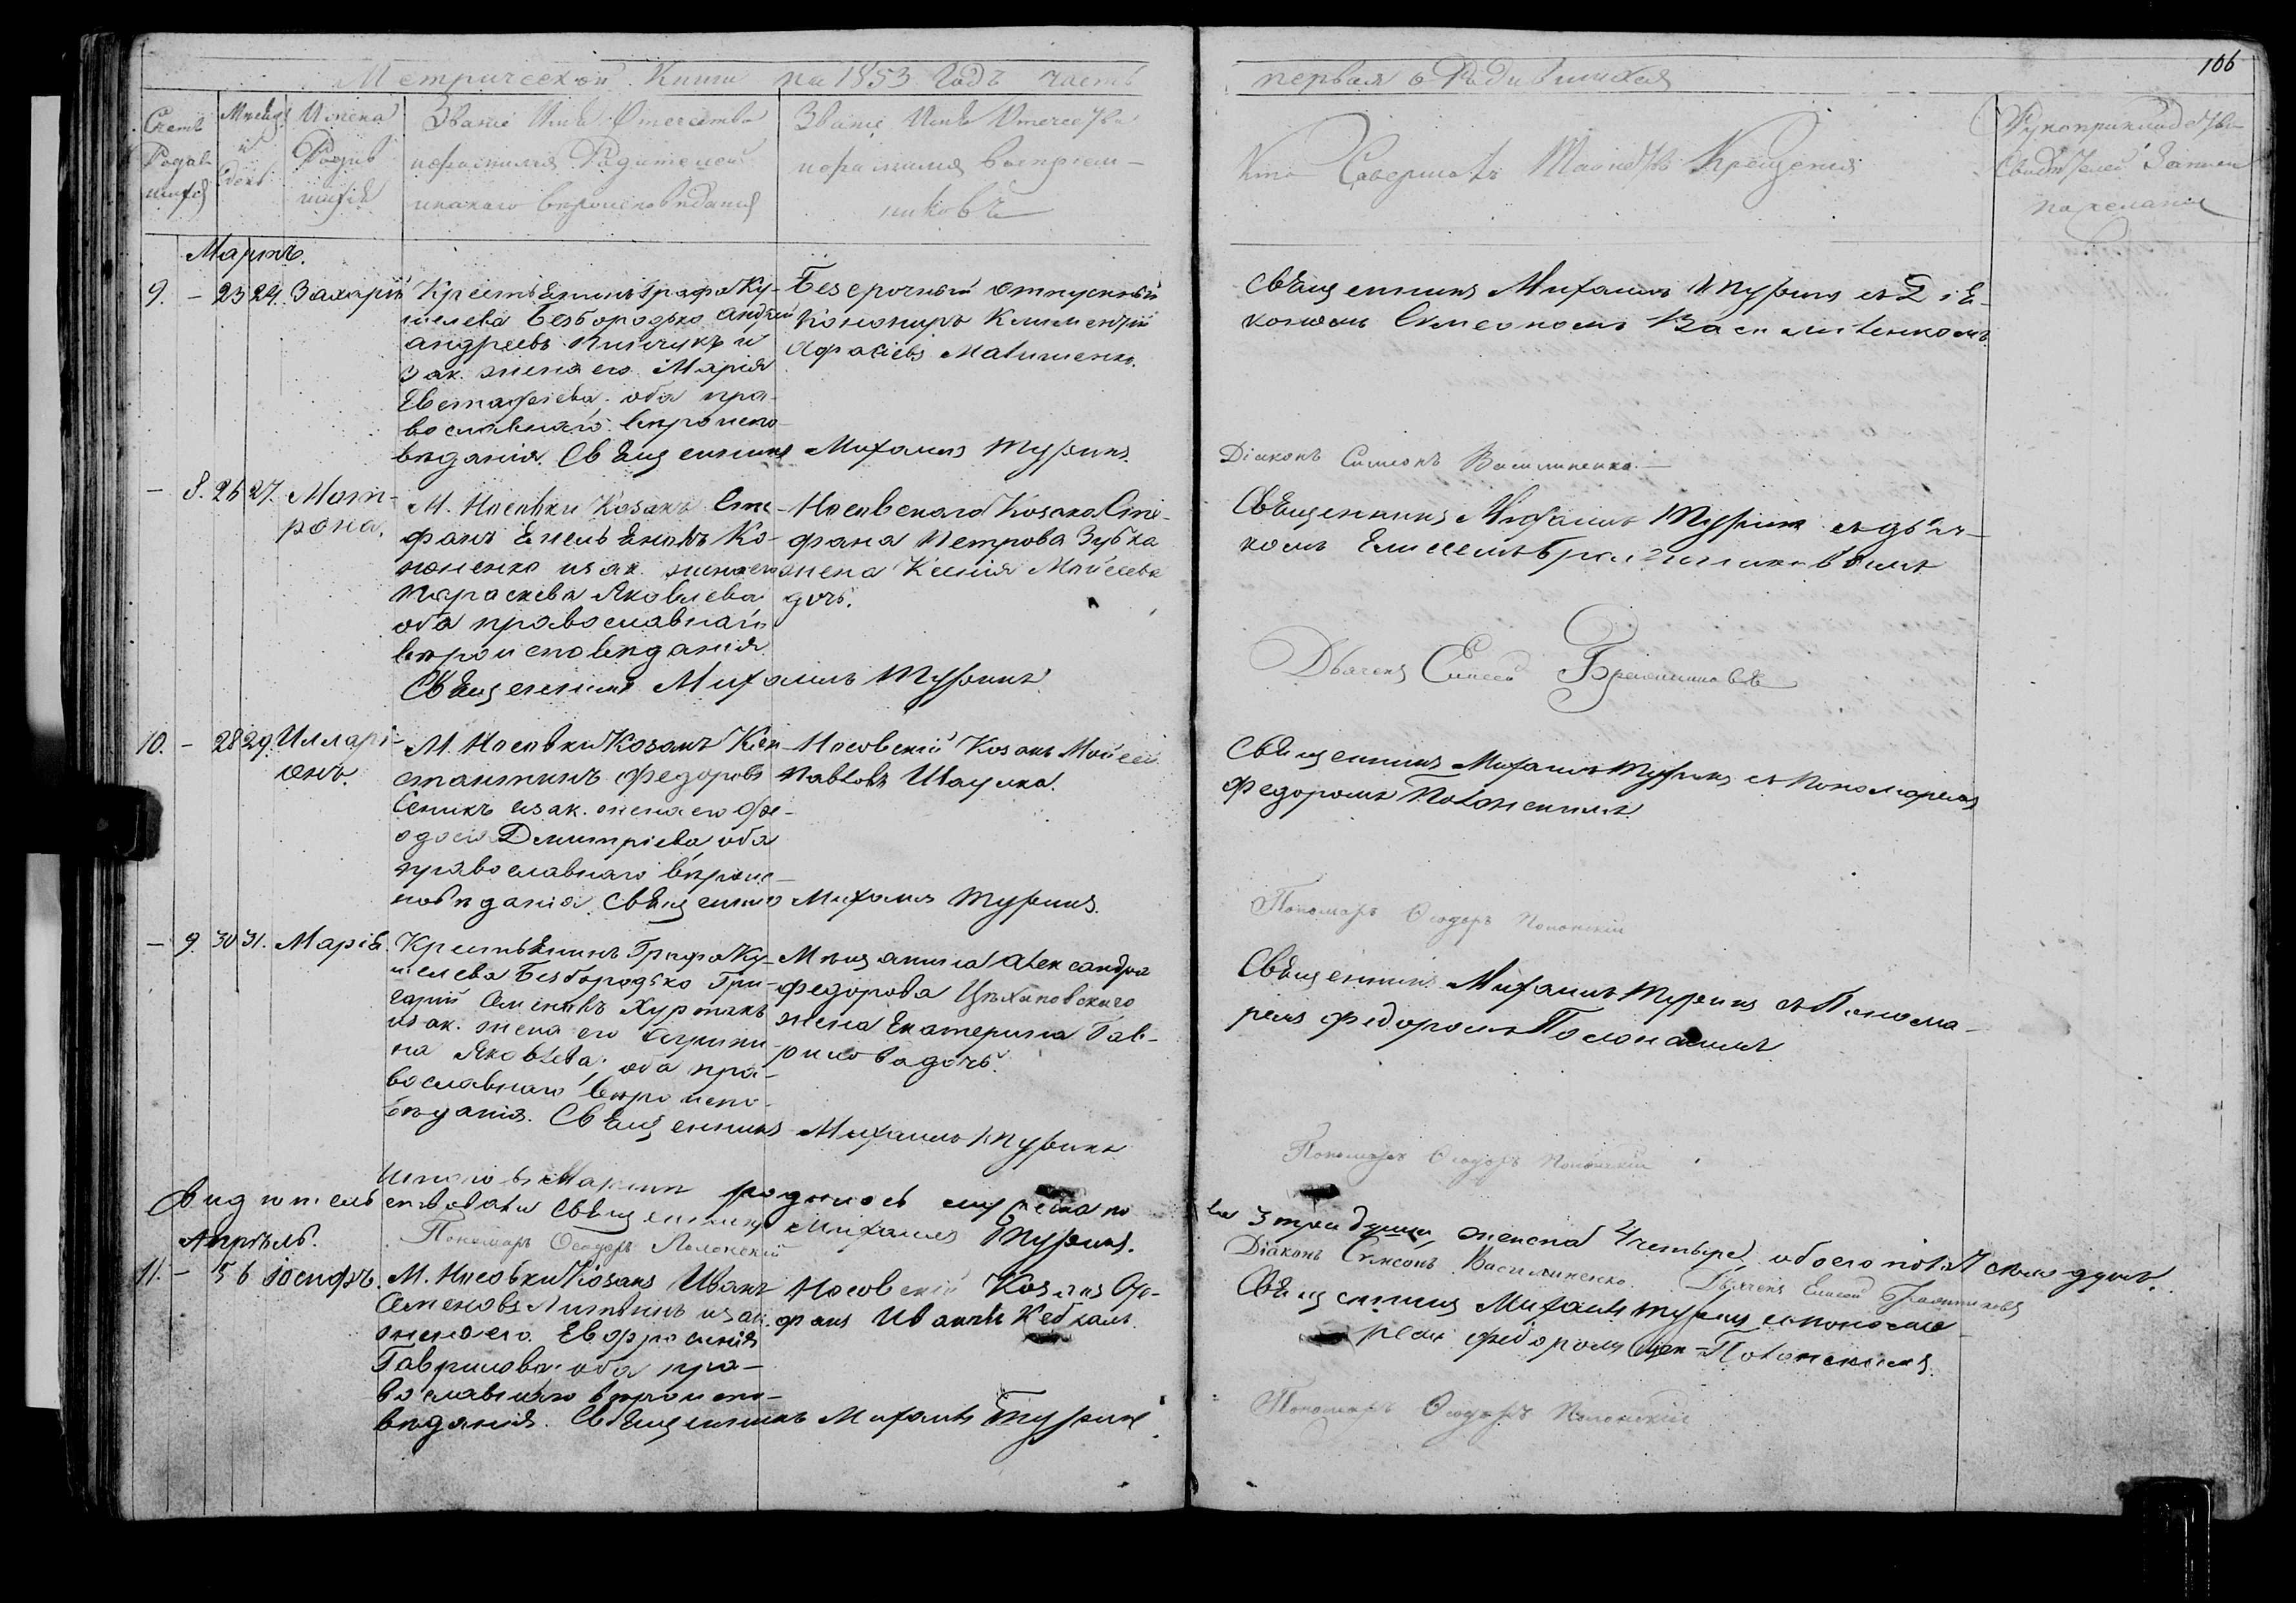 106
Метрической Книги на 1853 Годъ часть
первая о Родившихся
Счетъ Родившихся
Мѣсяцъ и день
Имена Родившихся
Званіе Имя Отчество
и фамилія Родителей
и какого вѣроисповѣданія
Званіе Имя Отчество
и фамилія воспріем-
никовъ
Кто Совершалъ Таинство Крещенія
Рукоприкладство
Свидѣтелей записи
по желанію
Мартъ.
9. – 23 24. Захарій
Крестьянинъ Графа Ку-
шелева Безбородько Андрей
Андреевъ и
зак. жена его Марія
Евстафіева оба пра-
вославнаго вѣроиспо-
вѣданія. Священникъ Михаилъ
Безсрочный отпускный
Климентій
Афанасіевъ Матишенко.
Священникъ Михаилъ съ Дья-
кономъ Симеономъ Василиненкомъ
Діаконъ Симеонъ Василиненко
– 8. 26 27. Мат-
рона.
М. Носовки Козакъ Сте-
фанъ Ко-
ненко и зак. жена его
Параскева Яковлева
оба православнаго
вѣроисповѣданія
Священникъ Михаилъ
Носовскаго Козака Сте-
фана Петрова Зубка
жена Ксенія Моисеева
дочь.
Священникъ Михаилъ съ дьяч-
комъ Елисеемъ
Дьячекъ Елисей
10. – 28 29. Илларі-
онъ.
М. Носовки Козакъ Кон-
стантинъ Федоровъ
Сеникъ и зак. жена его Фе-
одосія Дмитріева, оба
православнаго вѣроис-
повѣданія. Священникъ Михаилъ
Носовскій Козакъ Моисей
Павловъ
Священникъ Михаилъ съ Пономаремъ
Федоромъ Полонскимъ
Пономарь Ѳеодоръ Полонскій
– 9. 30 31. Марія.
Крестьянинъ Графа Ку-
шелева Безбородько Гри-
горій Семеновъ
и зак. жена его Агрипи-
на Яковлева, оба пра-
вославнаго вѣроиспо-
вѣданія. Священникъ Михаилъ
Мѣщанина Александра
Федорова Цѣхановскаго
жена Екатерина Гав-
рилова дочь.
Священникъ Михаилъ съ Понома-
ремъ Федоромъ Полонскимъ
Пономарь Ѳеодоръ Полонскій
Итого въ Мартѣ родилось мужеска по
ла 3 три души, женска 4 четыре, обоего пола 7 семь душъ.
Свидѣтельствовали Священникъ Михаилъ
Пономарь Ѳеодоръ Полонскій
Діаконъ Симеонъ Василиненко. Дьячекъ Елисей
Апрѣль.
11. – 5 6 Іосифъ.
М. Носовки Козакъ Иванъ
Семеновъ Литвинъ и зак.
жена его Евфросинія
Гаврилова оба пра-
вославнаго вѣроиспо-
вѣданія. Священникъ Михаилъ
Носовскій Козакъ Сте-
фанъ Ивановъ Кебкалъ
Священникъ Михаилъ съ понома-
ремъ Федоромъ Полонскимъ.
Пономарь Ѳеодоръ Полонскій